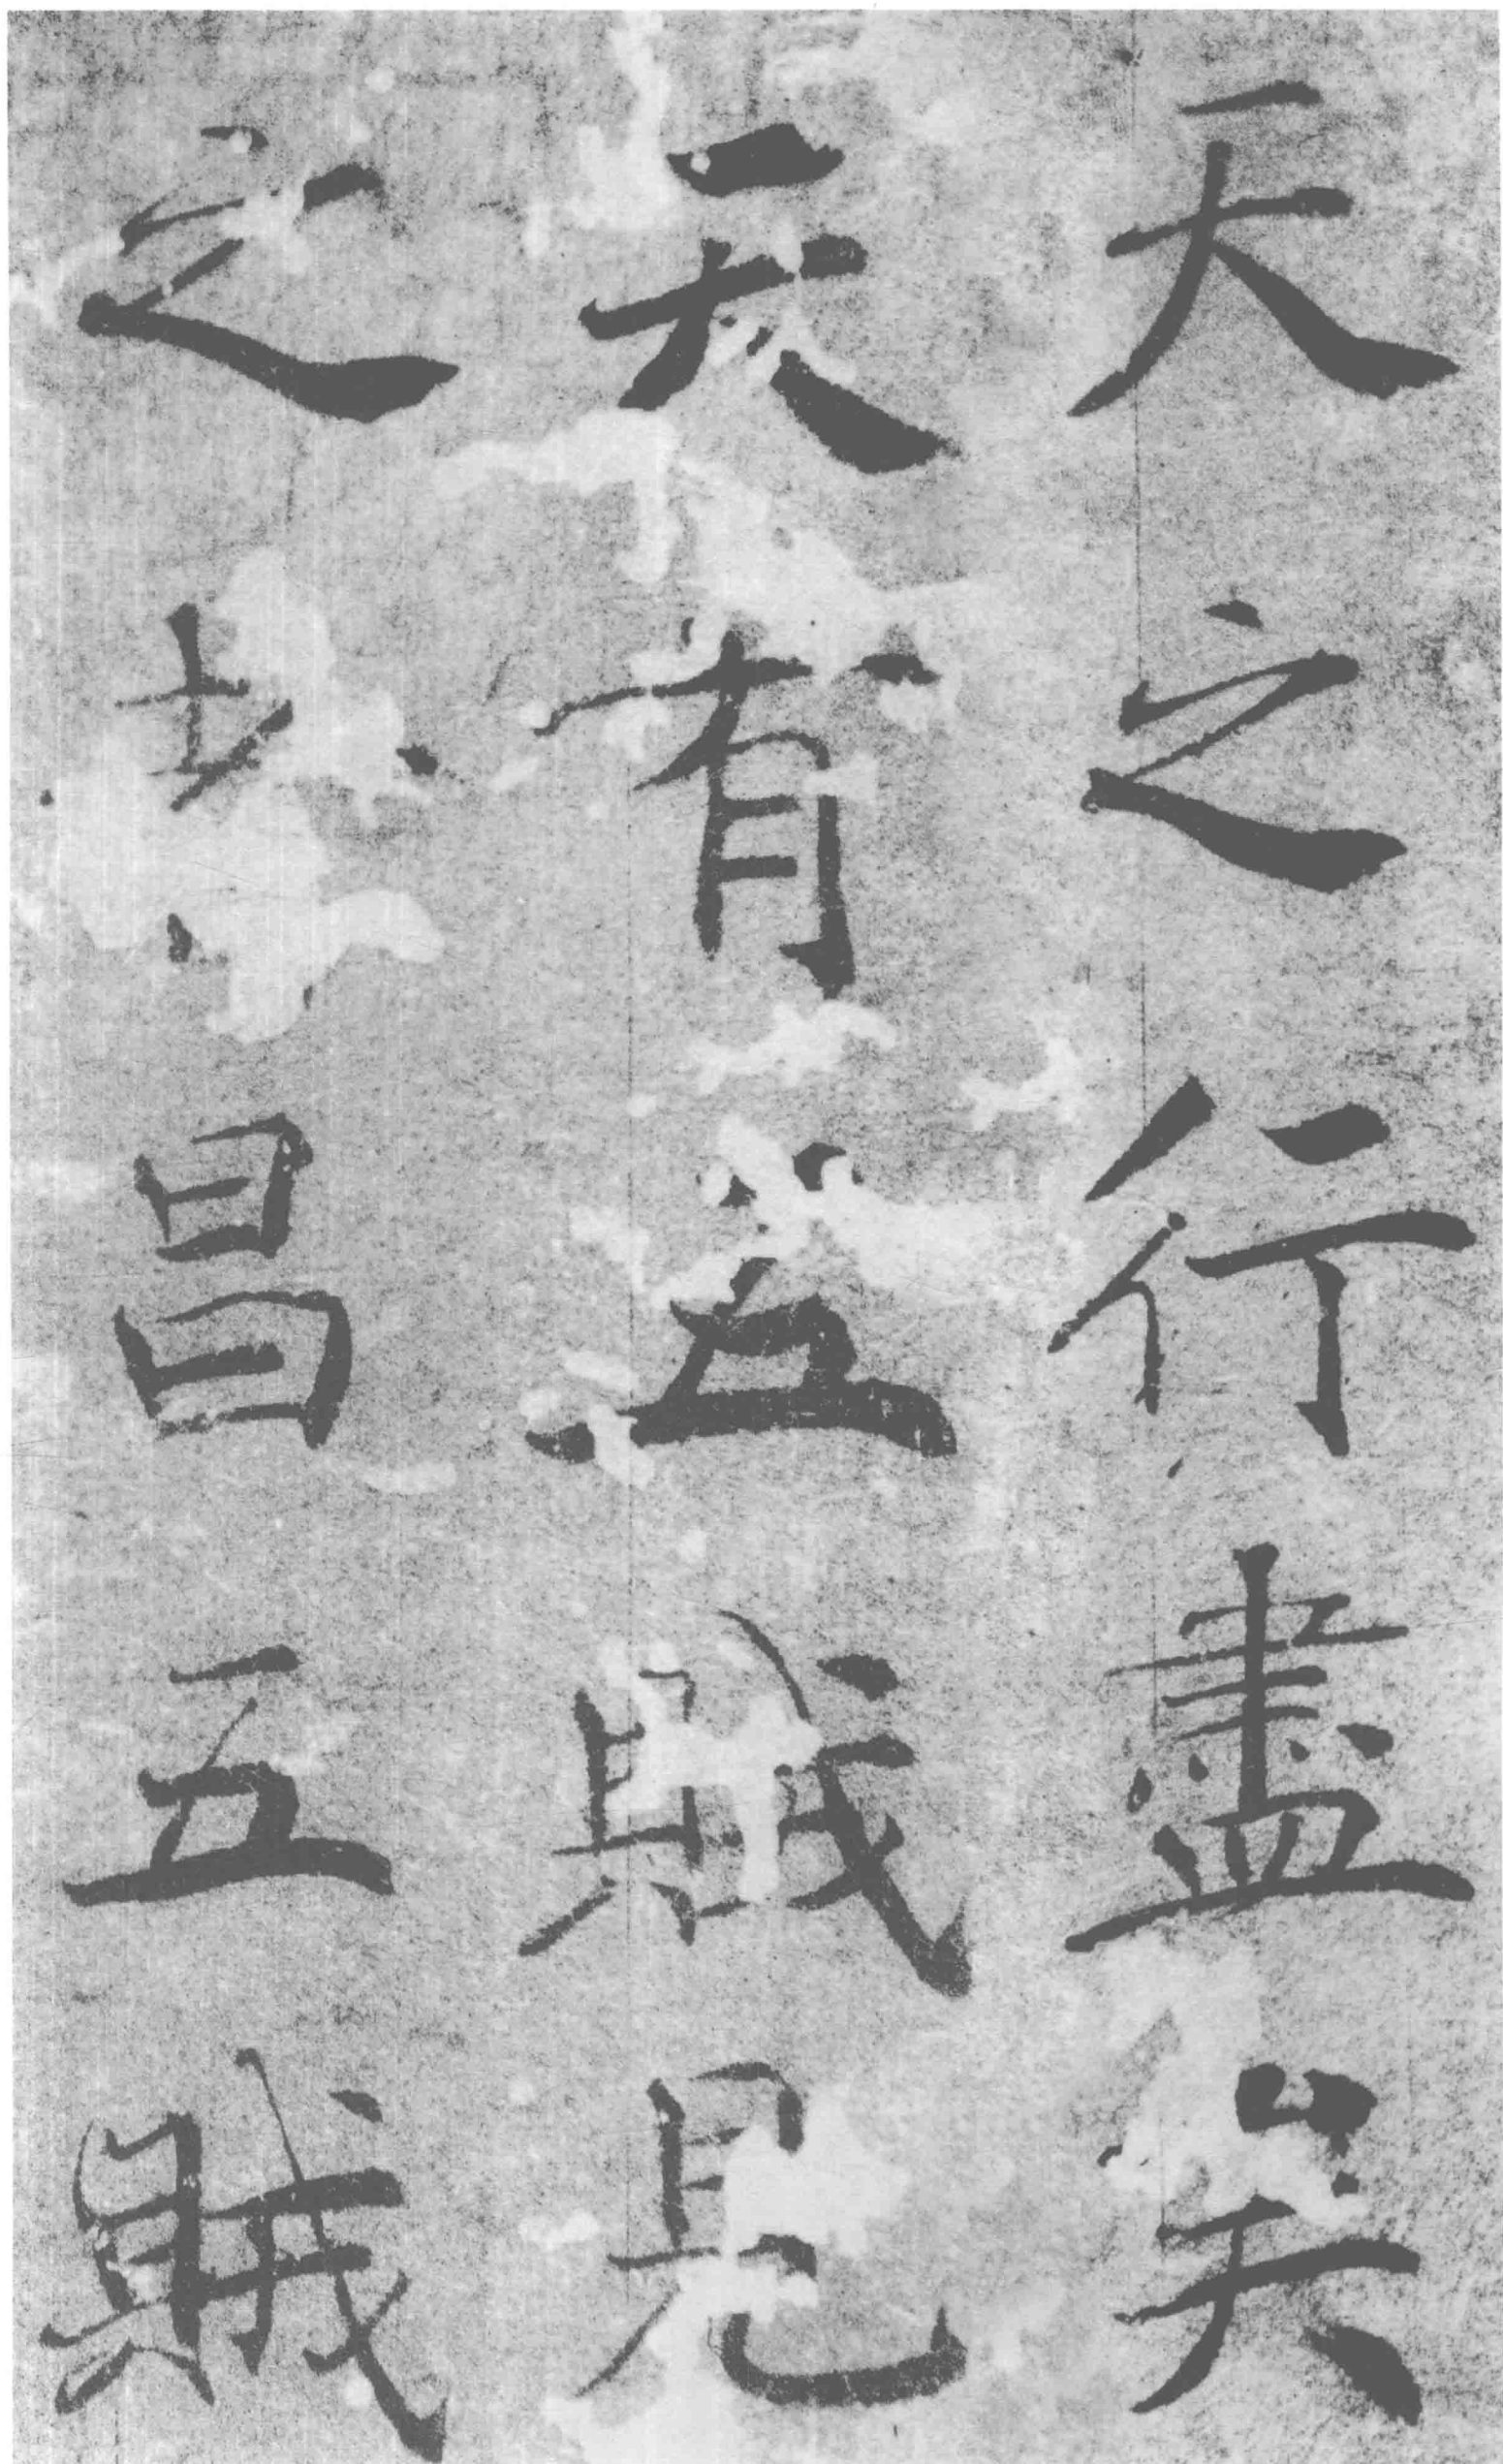 天之行盡矣
天有五賊見
之者昌五賊